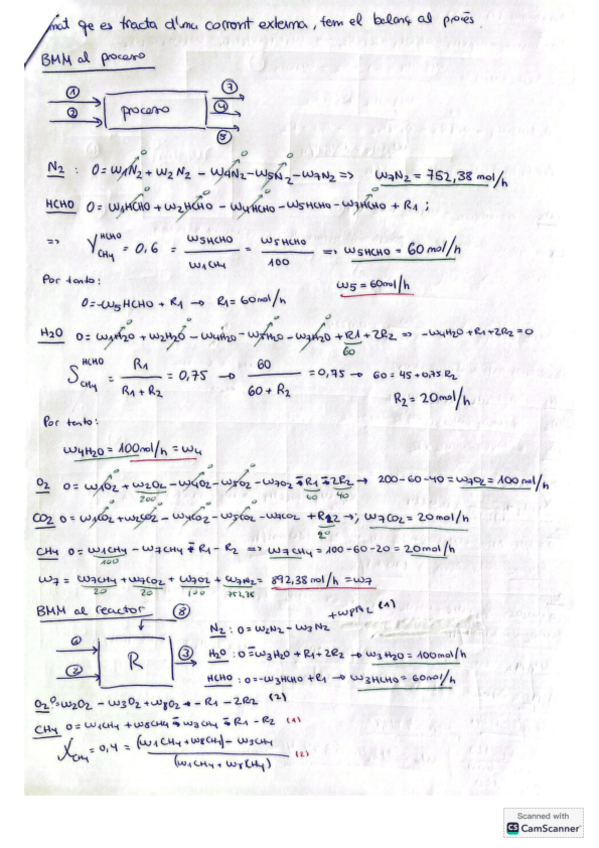 que es tracta d'una corrent externa, fem el balanç al procés.
BMM al proceso
1 7
2 proceso 4
5
N2 : 0 = W1N2 + W2N2 - W4N2 - W5N2 - W7N2 => W7N2 = 752,38 mol/h
HCHO 0 = W1HCHO + W2HCHO - W4HCHO - W5HCHO - W7HCHO + R1 ;
=> Y HCHO CH4 = 0,6 = W5HCHO / W1CH4 = W5HCHO / 100 => W5HCHO = 60 mol/h
Por tanto: W5 = 60mol/h
0 = -W5HCHO + R1 → R1 = 60mol/h
H2O 0 = W1H2O + W2H2O - W4H2O - W5H2O - W7H2O + R1 + 2R2 => -W4H2O + R1 + 2R2 = 0
60
S HCHO CH4 = R1 / R1 + R2 = 0,75 → 60 / 60 + R2 = 0,75 → 60 = 45 + 0,75 R2
R2 = 20mol/h
Por tanto:
W4H2O = 100mol/h = W4
O2 0 = W1O2 + W2O2 - W4O2 - W5O2 - W7O2 - R1 - 2R2 → 200-60-40 = W7O2 = 100mol/h
200 60 40
CO2 0 = W1CO2 + W2CO2 - W4CO2 - W5CO2 - W7CO2 + R2 → ; W7CO2 = 20mol/h
20
CH4 0 = W1CH4 - W7CH4 - R1 - R2 => W7CH4 = 100-60-20 = 20mol/h
100
W7 = W7CH4 + W7CO2 + W7O2 + W7N2 = 892,38 mol/h = W7
20 20 100 752,38
BMM al reactor 8
1 R 3
2
N2 : 0 = W2N2 - W3N2 + W8N2 (1)
H2O : 0 = -W3H2O + R1 + 2R2 → W3H2O = 100mol/h
HCHO : 0 = -W3HCHO + R1 → W3HCHO = 60mol/h
O2 0 = W2O2 - W3O2 + W8O2 - R1 - 2R2 (2)
CH4 0 = W1CH4 + W8CH4 - W3CH4 - R1 - R2 (1)
XCH4 = 0,4 = (W1CH4 + W8CH4) - W3CH4 / (W1CH4 + W8CH4) (2)
Scanned with
CS CamScanner